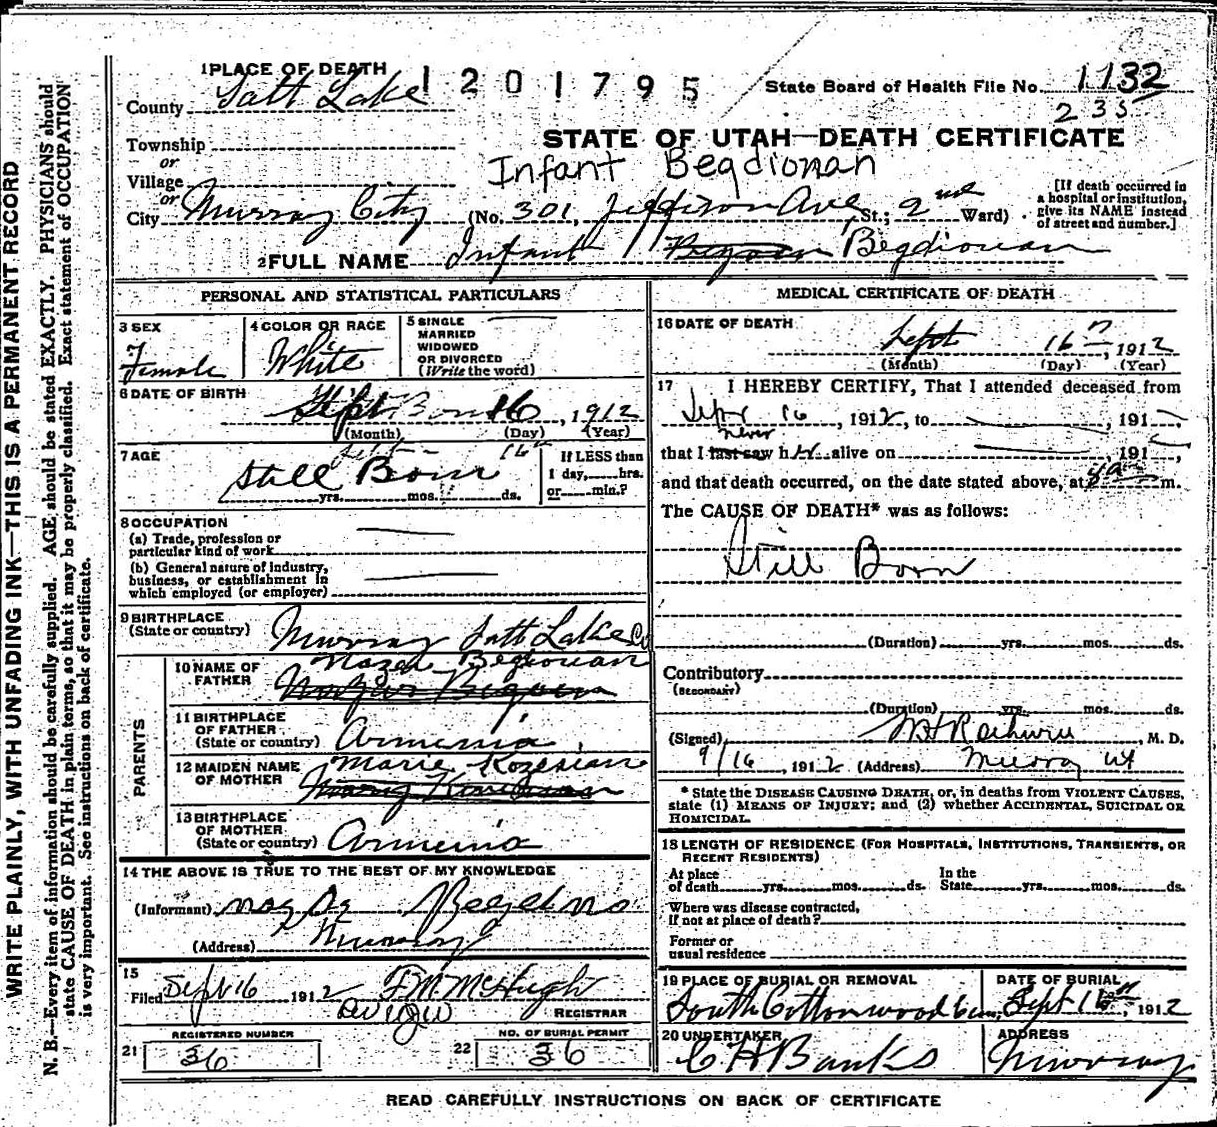 1 PLACE OF DEATH 1201795 State Board of Health File No. 1132
County Salt Lake 235
STATE OF UTAH—DEATH CERTIFICATE
Township
or
Village Infant Begdionan
or
City Murray City (No. 301, Jefferson Ave St.; 2nd Ward)
[If death occurred in
a hospital or institution,
give its NAME instead
of street and number.]
2 FULL NAME Infant Begdiouan
PERSONAL AND STATISTICAL PARTICULARS
3 SEX Female
4 COLOR OR RACE White
5 SINGLE
MARRIED
WIDOWED
OR DIVORCED
(Write the word)
6 DATE OF BIRTH Sept 16, 1912
(Month) (Day) (Year)
Sept 16
7 AGE Still Born
yrs. mos. ds.
If LESS than
1 day, hrs.
or min.?
8 OCCUPATION
(a) Trade, profession or
particular kind of work
(b) General nature of industry,
business, or establishment in
which employed (or employer)
9 BIRTHPLACE
(State or country) Murray Salt Lake Co
PARENTS
10 NAME OF
FATHER Nazar Begdiouan
11 BIRTHPLACE
OF FATHER
(State or country) Armenia
12 MAIDEN NAME
OF MOTHER Marie Kozesian
13 BIRTHPLACE
OF MOTHER
(State or country) Armenia
14 THE ABOVE IS TRUE TO THE BEST OF MY KNOWLEDGE
(Informant)
(Address) Murray
15
Filed Sept 16 1912 F. M. McHugh
REGISTRAR
REGISTERED NUMBER
21 36
NO. OF BURIAL PERMIT
22 36
MEDICAL CERTIFICATE OF DEATH
16 DATE OF DEATH
Sept 16, 1912
(Month) (Day) (Year)
17 I HEREBY CERTIFY, That I attended deceased from
Sept 16, 1912, to , 191 ,
never
that I last saw her alive on , 191 ,
and that death occurred, on the date stated above, at m.
The CAUSE OF DEATH* was as follows:
Still Born
(Duration) yrs. mos. ds.
Contributory
(SECONDARY)
(Duration) yrs. mos. ds.
(Signed) , M. D.
9/16, 1912 (Address) Murray Ut
* State the DISEASE CAUSING DEATH, or, in deaths from VIOLENT CAUSES,
state (1) MEANS OF INJURY; and (2) whether ACCIDENTAL, SUICIDAL OR
HOMICIDAL.
18 LENGTH OF RESIDENCE (FOR HOSPITALS, INSTITUTIONS, TRANSIENTS, OR
RECENT RESIDENTS)
At place In the
of death yrs. mos. ds. State yrs. mos. ds.
Where was disease contracted,
If not at place of death?
Former or
usual residence
19 PLACE OF BURIAL OR REMOVAL DATE OF BURIAL
South Cottonwood Cem, Sept 16, 1912
20 UNDERTAKER ADDRESS
C H Banks Murray
READ CAREFULLY INSTRUCTIONS ON BACK OF CERTIFICATE
WRITE PLAINLY, WITH UNFADING INK—THIS IS A PERMANENT RECORD
N. B.—Every item of information should be carefully supplied. AGE should be stated EXACTLY. PHYSICIANS should
state CAUSE OF DEATH in plain terms, so that it may be properly classified. Exact statement of OCCUPATION
is very important. See instructions on back of certificate.